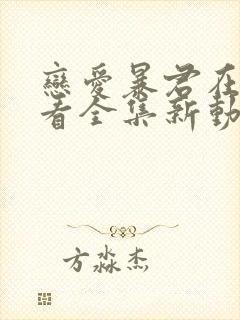 戀愛暴君在
看全集新動
方淼杰